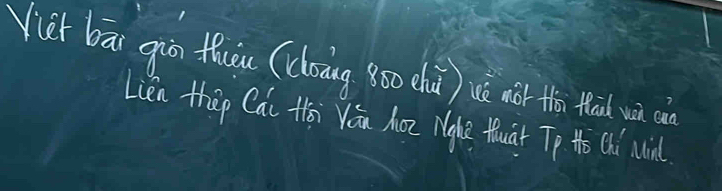 Viết bài giới thiệu (khoảng 800 chữ) về một Hội thành viên của
Liên hiệp Các Hội Văn học Nghệ thuật Tp Hồ Chí Minh.